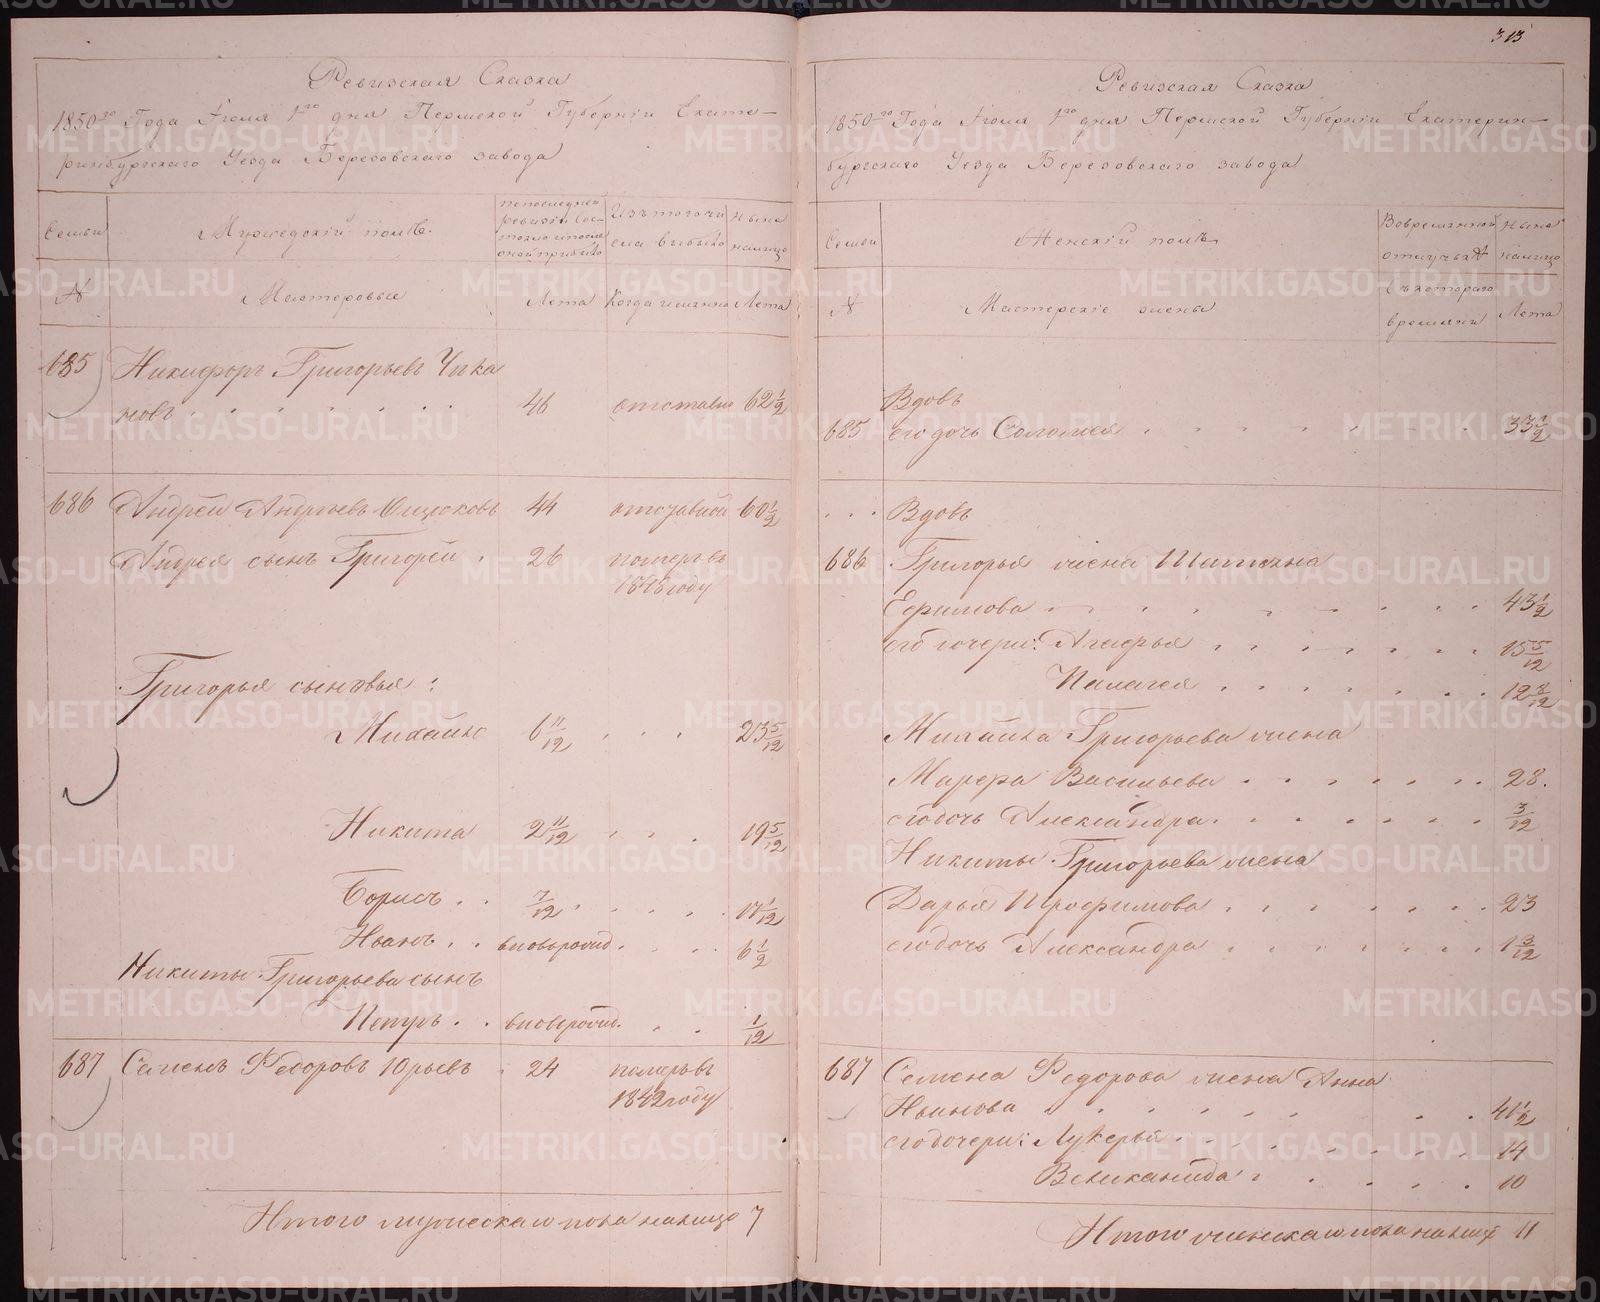 313
Ревизская Сказка
1850го Года Июля 1го дня Пермской Губернiи Екате-
ринбургскаго Уезда Березовскаго завода
Семьи
Мужескiй полъ.
По последней ревизiи состояло и после оной прибыло
Изъ того числа выбыло
Ныне на лицо
№
Мастеровые
Лета
Когда именно
Лета
685 Никифоръ Григорьевъ Чека
новъ . . . . . . 46 отставн 62 1/2
686 Андрей Андреевъ 44 отставной 60 1/2
Андрея сынъ Григорей . 26 померъ въ
1848 году
Григорья сыновья:
Михайло 6 11/12 . . . 23 5/12
Никита 2 11/12 . . . 19 5/12
Борисъ . . 7/12 . . . . 17 1/12
Иванъ . . вновьрожд. . . . 6 1/2
Никиты Григорьева сынъ
Петръ . . вновьрожд. . . 1/12
687 Семенъ Федоровъ Юрьевъ . 24 померъ въ
1842 году
Итого мужеска пола на лицо 7
Ревизская Сказка
1850го Года Июля 1го дня Пермской Губернiи Екатерин-
бургскаго Уезда Березовскаго завода
Семьи
Женскiй полъ
Во временной отлучке
Ныне на лицо
№
Мастерскiе жены
Съ котораго времяни
Лета
Вдовъ
685 его дочь Соломея . . . . . . . 33 1/2
. . . Вдовъ
686 Григорья жена
Ефимова . . . . . . . . 43 1/2
его дочери: Агафья . . . . . . . 15 5/12
Пелагея . . . . . . . 12 8/12
Михайла Григорьева жена
Марфа Васильева . . . . . . 28.
его дочь Александра . . . . . . . 3/12
Никиты Григорьева жена
Дарья Трофимова . . . . . . . 23
его дочь Александра . . . . . . . 1 3/12
687 Семена Федорова жена Анна
Иванова . . . . . . . . . 41 1/2
его дочери: Лукерья . . . . . . . 14
Великанида . . . . . 10
Итого женска пола на лице 11
METRIKI.GASO-URAL.RU